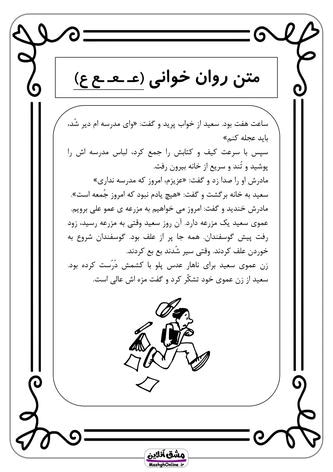 متن روان خوانی (عـ ـعـ ـع ع)
ساعت هفت بود. سعید از خواب پرید و گفت: «وای مدرسه ام دیر شُد،
باید عجله کنم»
سپس با سرعت کیف و کتابش را جمع کرد، لباس مدرسه اش را
پوشید و تُند و سریع از خانه بیرون رفت.
مادرش او را صدا زد و گفت: «عزیزم، امروز که مدرسه نداری»
سعید به خانه برگشت و گفت: «هیچ یادم نبود که امروز جُمعه است».
مادرش خندید و گفت: امروز می خواهیم به مزرعه ی عمو علی برویم.
عموی سعید یک مزرعه دارد. آن روز سعید وقتی به مزرعه رسید، زود
رفت پیش گوسفندان. همه جا پر از علف بود. گوسفندان شروع به
خوردن علف کردند. وقتی سیر شُدند بع بع کردند.
زن عموی سعید برای ناهار عدس پلو با کشمش دُرُست کرده بود.
سعید از زن عموی خود تشکّر کرد و گفت مزه اش عالی است.
مشق آنلاین
MashghOnline.ir